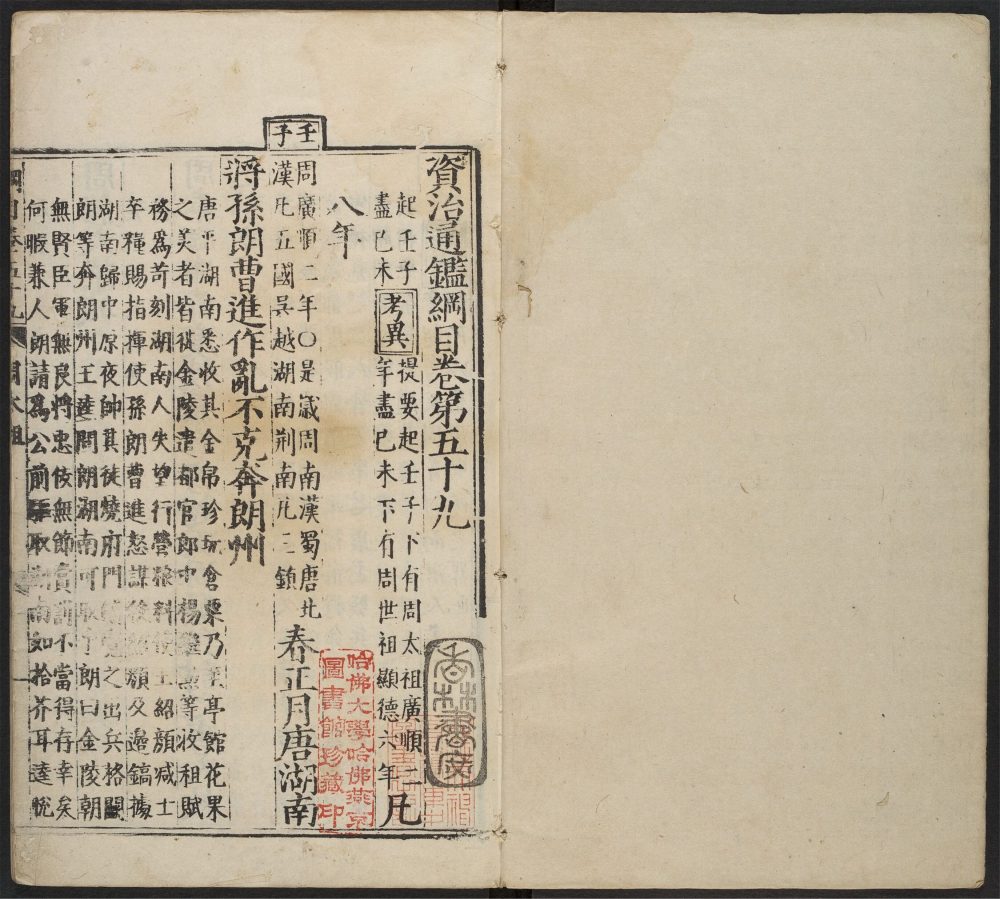 資治通鑑綱目卷第五十九
起壬子
盡己未
考異
提要起壬子下有周太祖廣順二
年盡己未下有周世祖顯德六年
凡
八年
哈佛大學哈佛燕京
圖書館珍藏印
壬子
周廣順二年○是歲周南漢蜀唐北
漢凡五國吳越湖南荆南凡三鎮
春正月唐湖南
將孫朗曹進作亂不克奔朗州
唐平湖南悉收其金帛珍玩倉粟乃至亭館花果
之美者皆徙金陵遣都官郎中楊繼勳等收租賦
務爲苛刻湖南人失望行營粮料使王紹顔减士
卒糧賜指揮使孫朗曹進怒謀殺紹顔及邊鎬據
湖南歸中原夜帥其徒燒府門鎬覺之出兵格鬭
朗等奔朗州王逵問朗湖南可取乎朗曰金陵朝
無賢臣軍無良將忠佞無節賞罰不當得存幸矣
何暇兼人朗請爲公前驅取湖南如拾芥耳逵恱